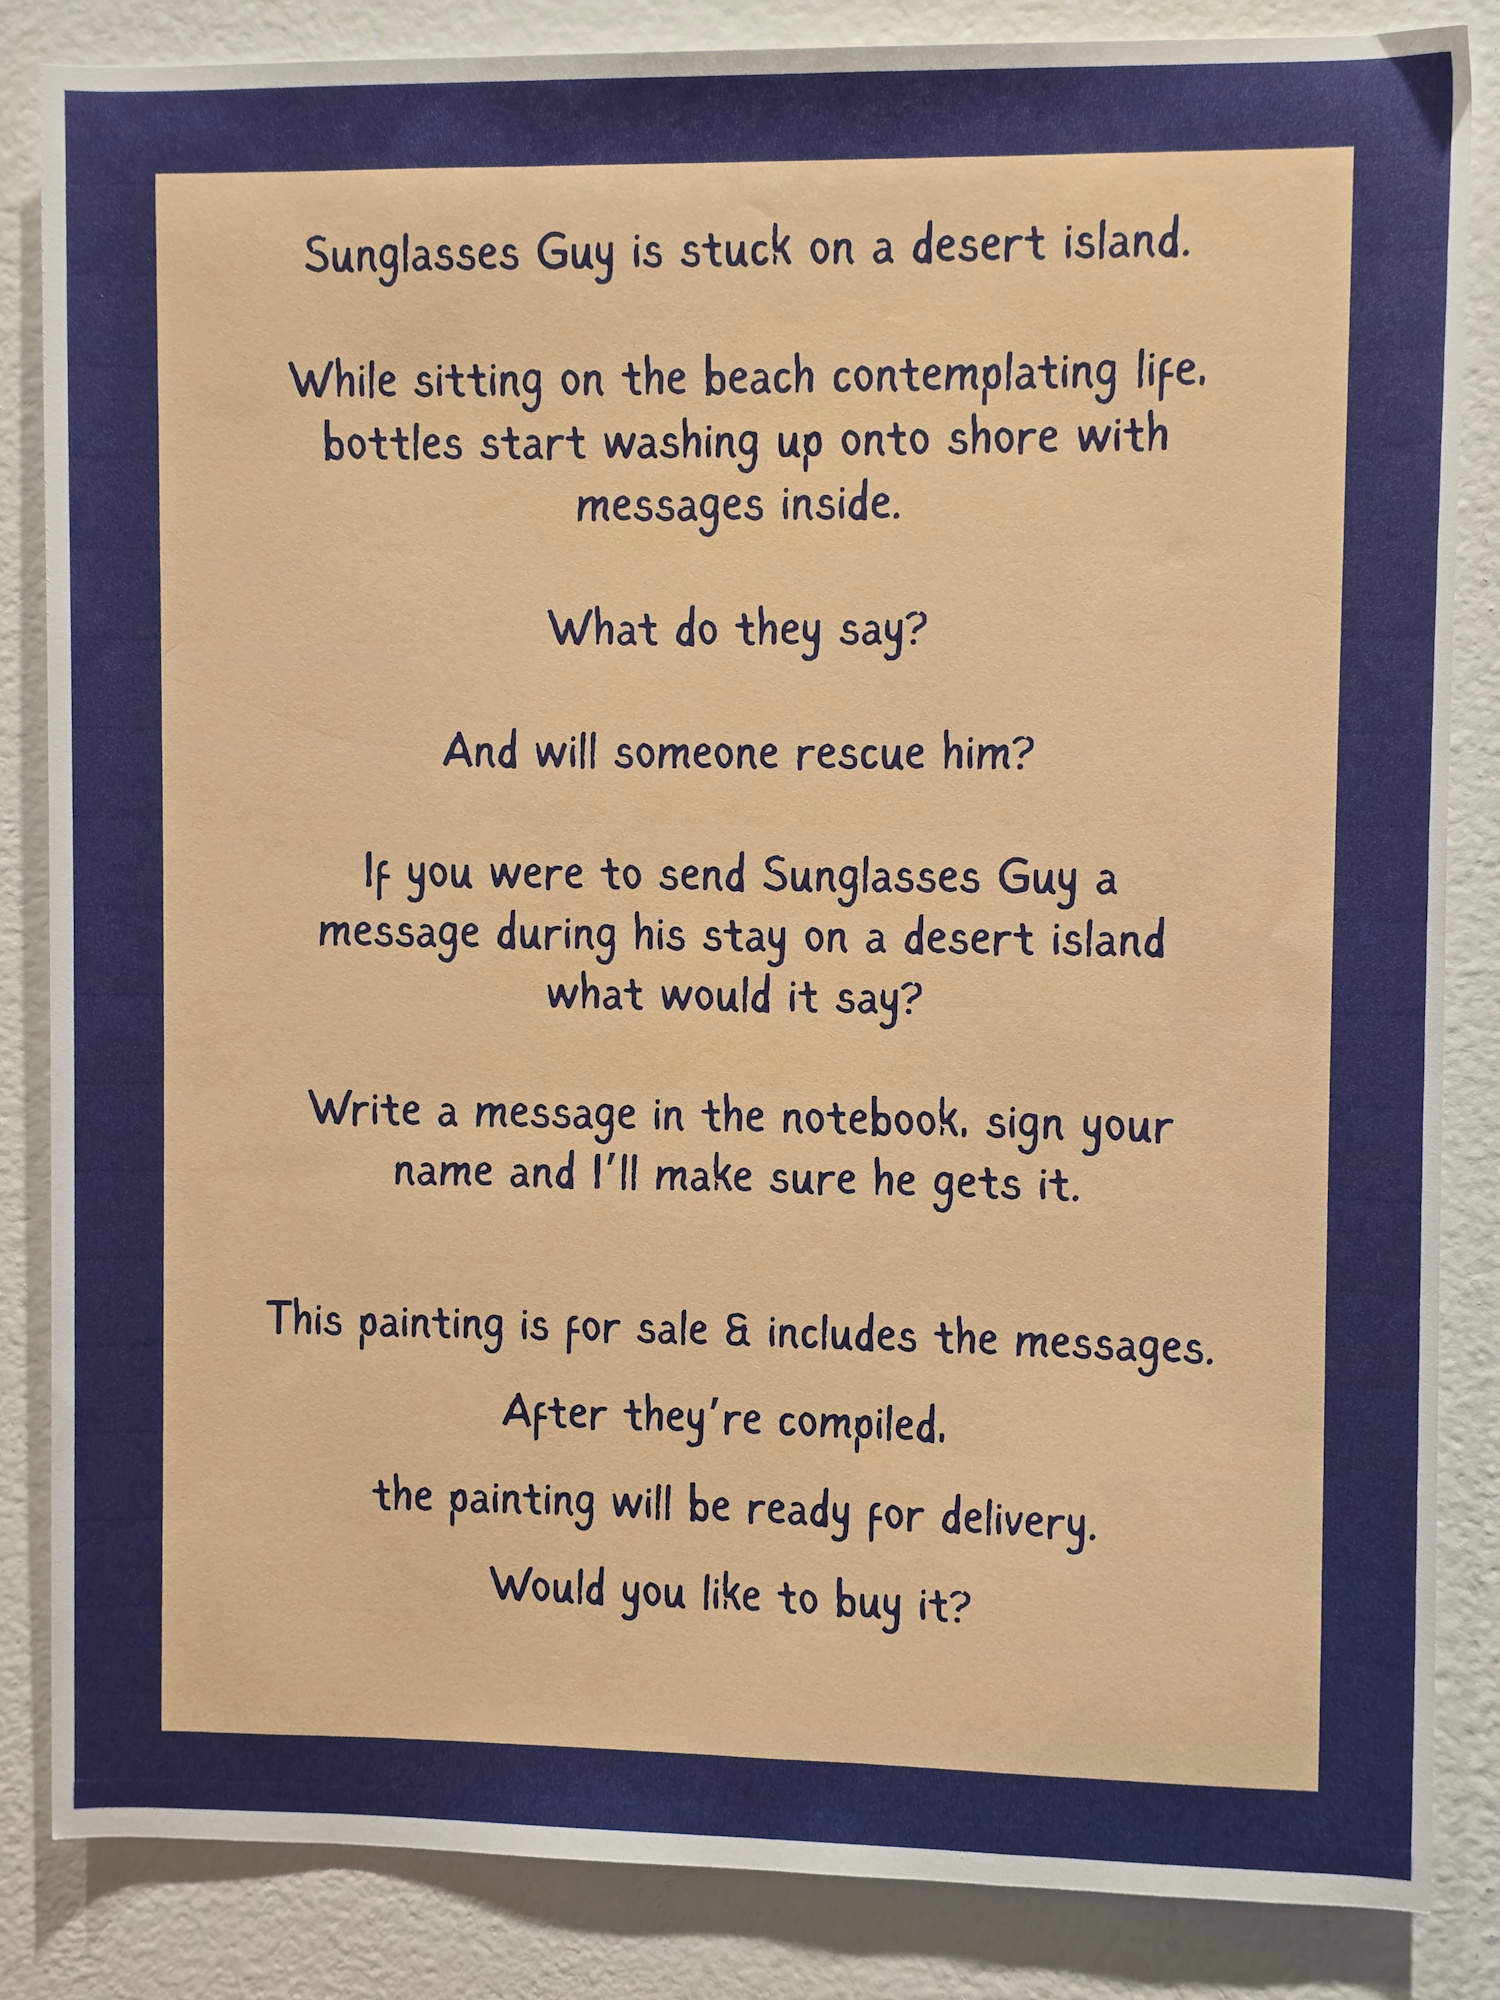 Sunglasses Guy is stuck on a desert island.
While sitting on the beach contemplating life,
bottles start washing up onto shore with
messages inside.
What do they say?
And will someone rescue him?
If you were to send Sunglasses Guy a
message during his stay on a desert island
what would it say?
Write a message in the notebook, sign your
name and I'll make sure he gets it.
This painting is for sale & includes the messages.
After they're compiled,
the painting will be ready for delivery.
Would you like to buy it?